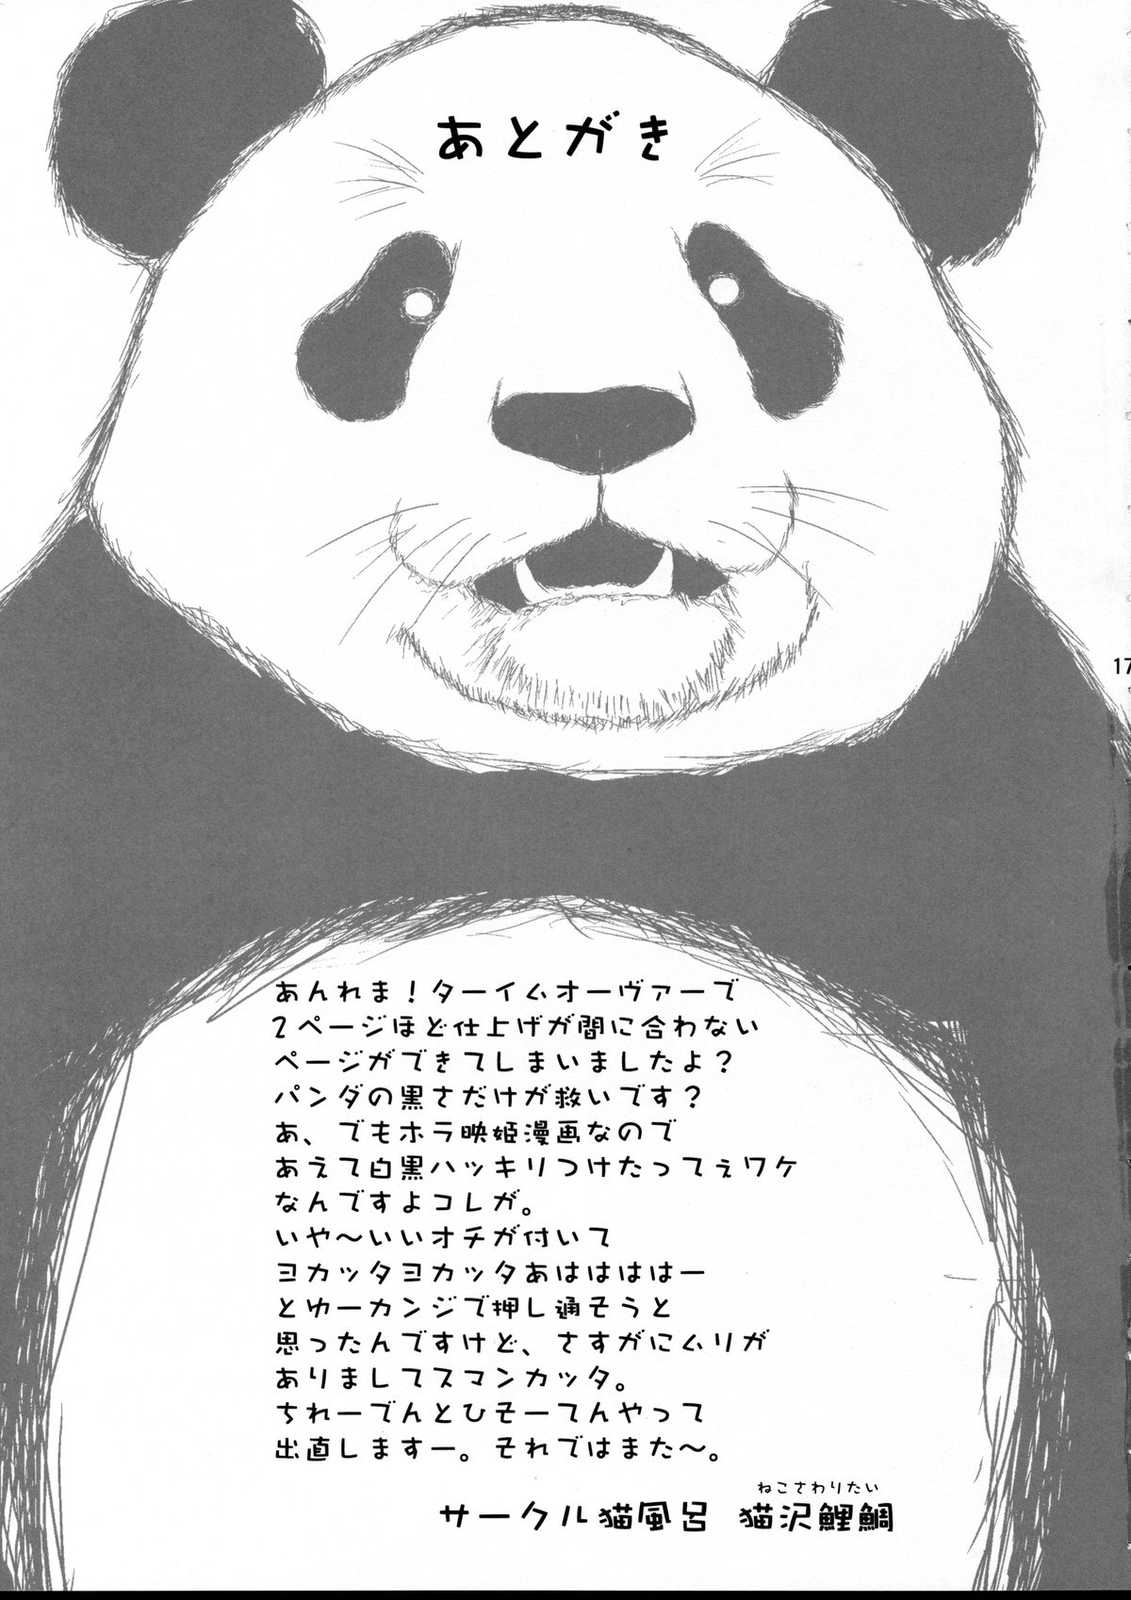 あとがき
17
あんれま！ターイムオーヴァーで
2ページほど仕上げが間に合わない
ページができてしまいましたよ？
パンダの黒さだけが救いです？
あ、でもホラ映姫漫画なので
あえて白黒ハッキリつけたってぇワケ
なんですよコレが。
いや～いいオチが付いて
ヨカッタヨカッタあはははー
とゆーカンジで押し通そうと
思ったんですけど、さすがにムリが
ありましてスマンカッタ。
ちれーでんとひそーてんやって
出直しますー。それではまた～。
ねこさわりたい
サークル猫風呂 猫沢鯉鯛